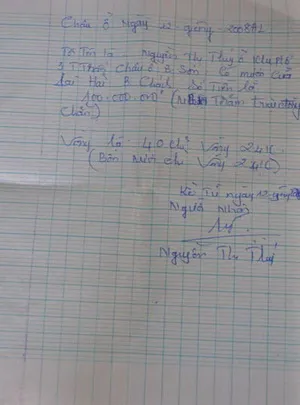 Châu ổ Ngày 12 giêng 2008AL
Tô Tên là Nguyễn Thị Thuý ở Khu Phố
5 T Trấn Châu ổ B Sơn Có mượn Của
Hai B Số Tiền là
100.000.000đ (Một Trăm Triệu
Chẵn)
Vàng là 40 chỉ Vàng 24K
(Bốn Mươi chỉ Vàng 24K)
Kể Từ ngày 12 giêng
Người Nhận
Nguyễn Thị Thuý